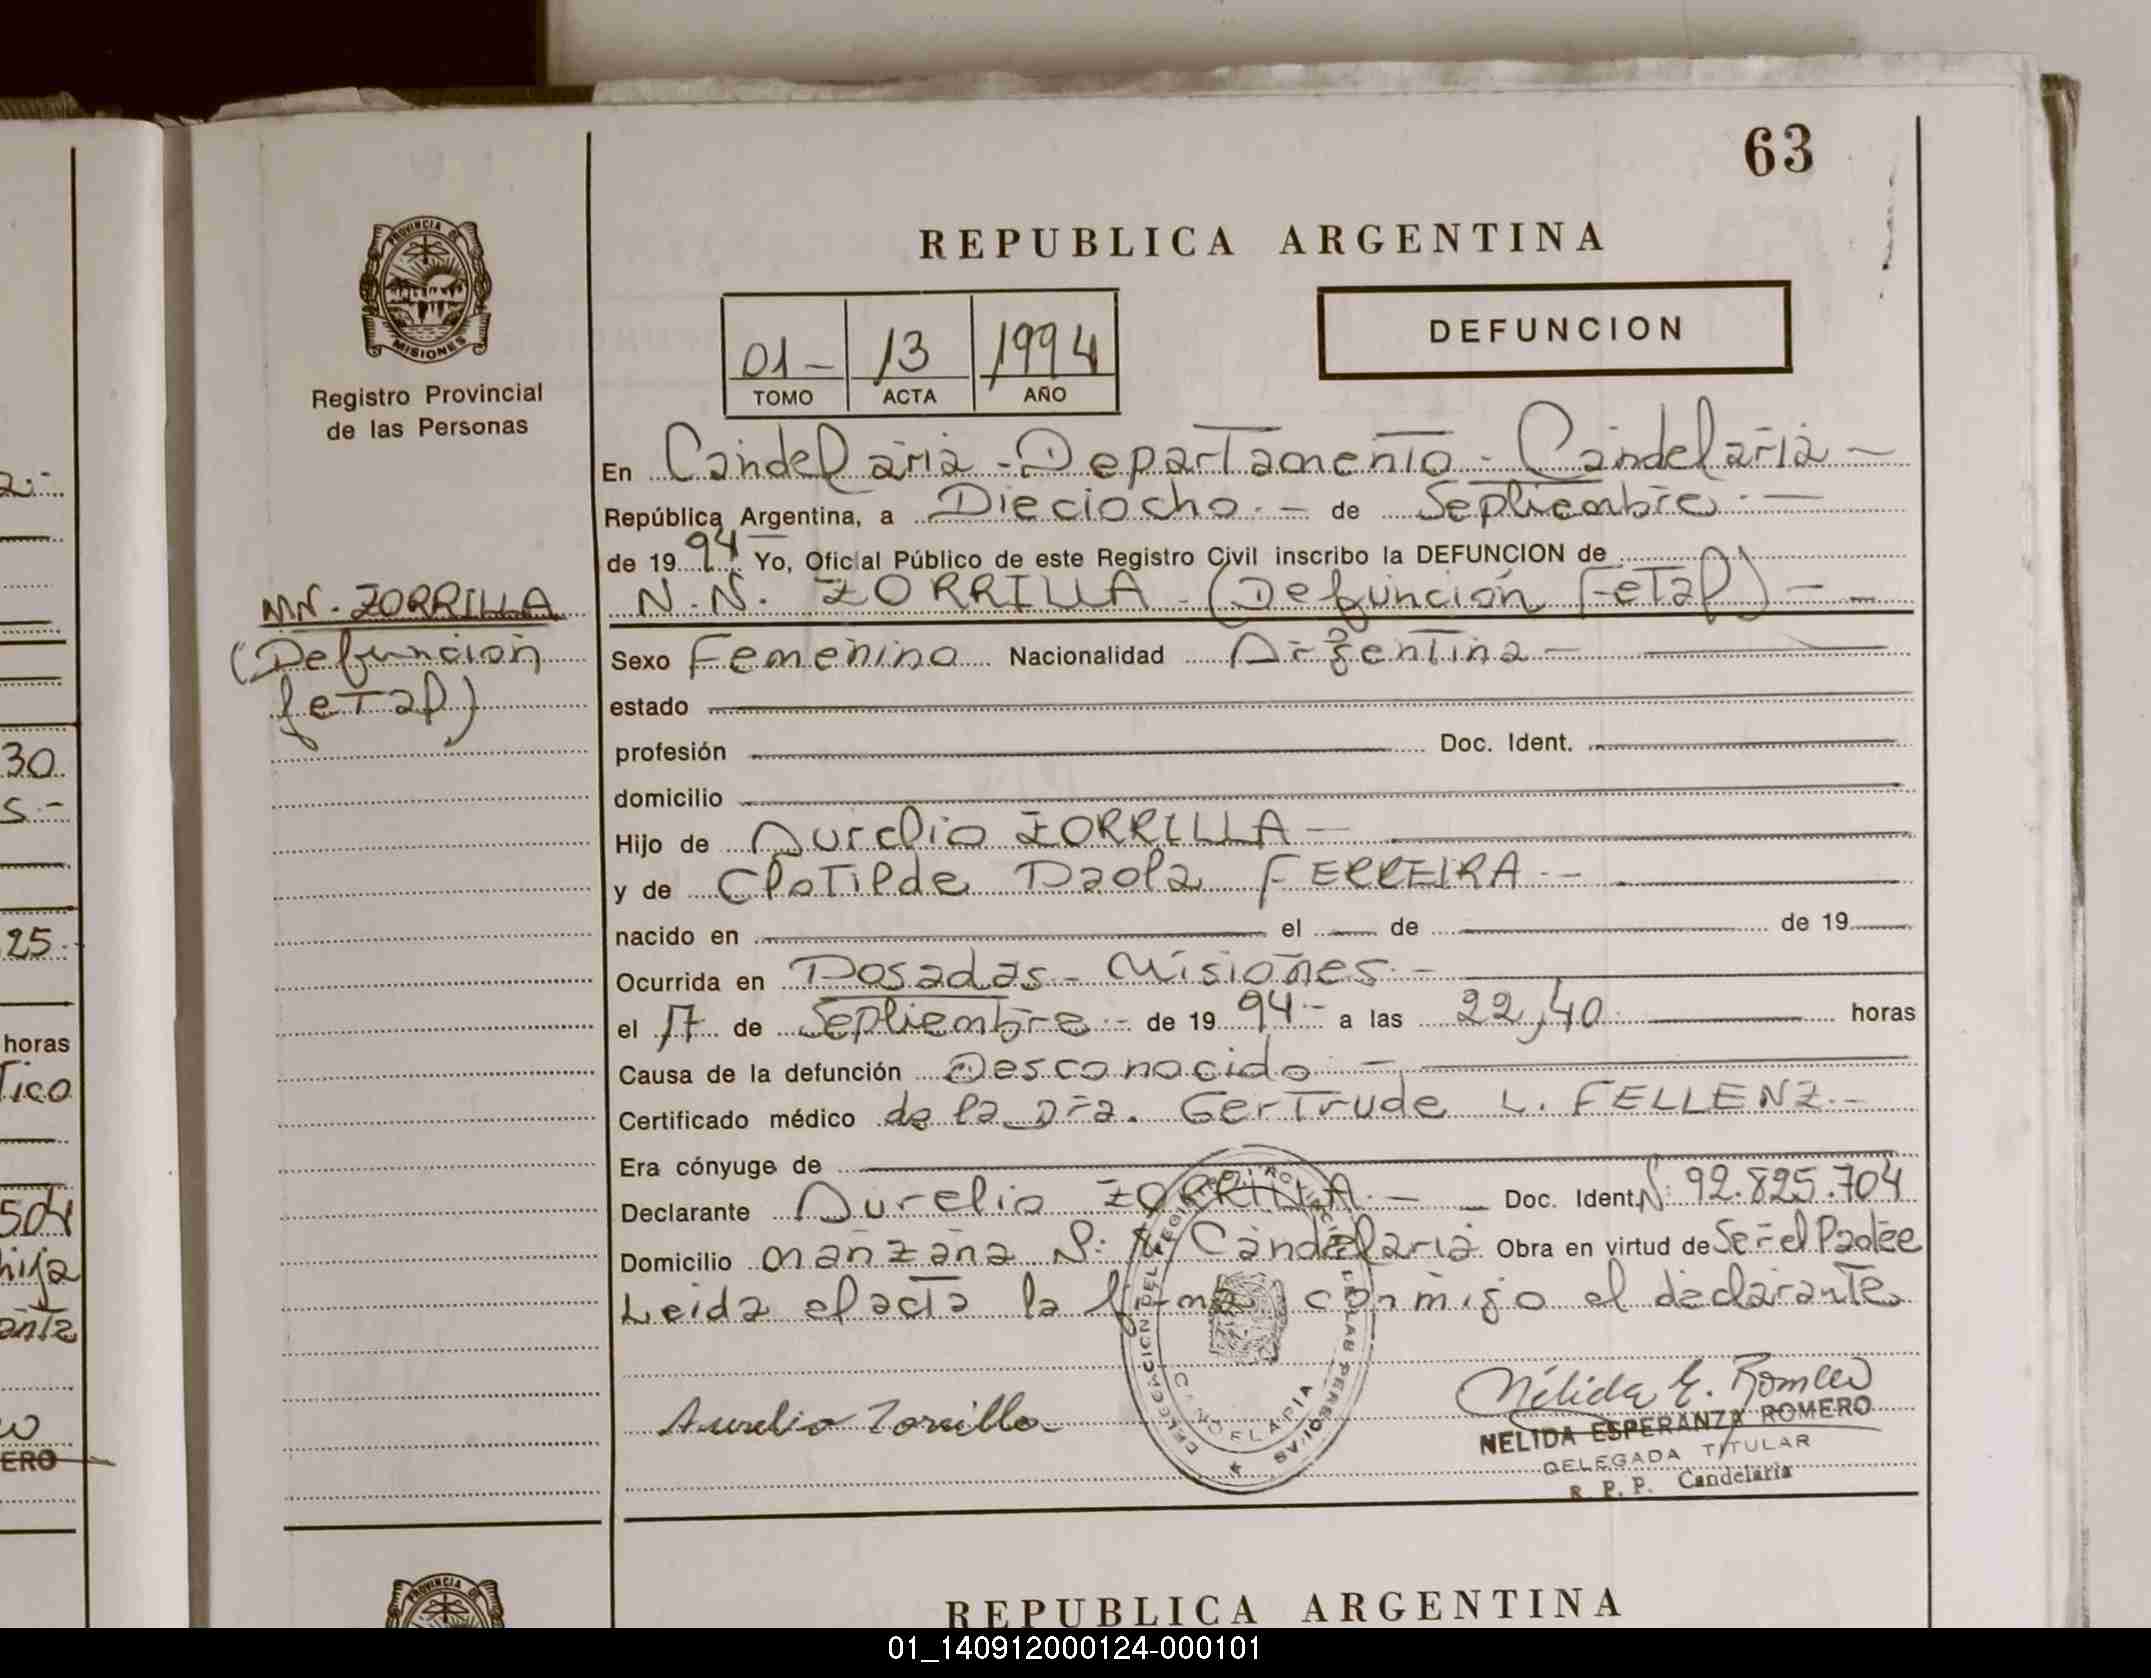 63
PROVINCIA DE
MISIONES
Registro Provincial
de las Personas
REPUBLICA ARGENTINA
DEFUNCION
01 - 13 1994
TOMO ACTA AÑO
En Candelaria - Departamento - Candelaria -
República Argentina, a Dieciocho - de Septiembre -
de 19 94 Yo, Oficial Público de este Registro Civil inscribo la DEFUNCION de
N.N. ZORRILLA (Defunción Fetal) -
NN. ZORRILLA
(Defunción
fetal)
Sexo Femenino Nacionalidad Argentina -
estado
profesión Doc. Ident.
domicilio
Hijo de Aurelio ZORRILLA -
y de Clotilde Paola FERREIRA -
nacido en el de de 19
Ocurrida en Posadas - Misiones -
el 17 de Septiembre - de 19 94 - a las 22,40 horas
Causa de la defunción Desconocido -
Certificado médico de la Dra. Gertrude L. FELLENZ -
Era cónyuge de
Declarante Aurelio ZORRILLA - Doc. Ident. Nº 92.825.704
Domicilio manzana Candelaria Obra en virtud de Ser el Padre
Leida el acta la firma conmigo el declarante
Aurelio Zorrilla
Nélida E. Romero
NELIDA ESPERANZA ROMERO
DELEGADA TITULAR
R. P. P. Candelaria
CANDELARIA
30
25
horas
tico
504
hija
ante
ERO
PROVINCIA DE
REPUBLICA ARGENTINA
01_140912000124-000101